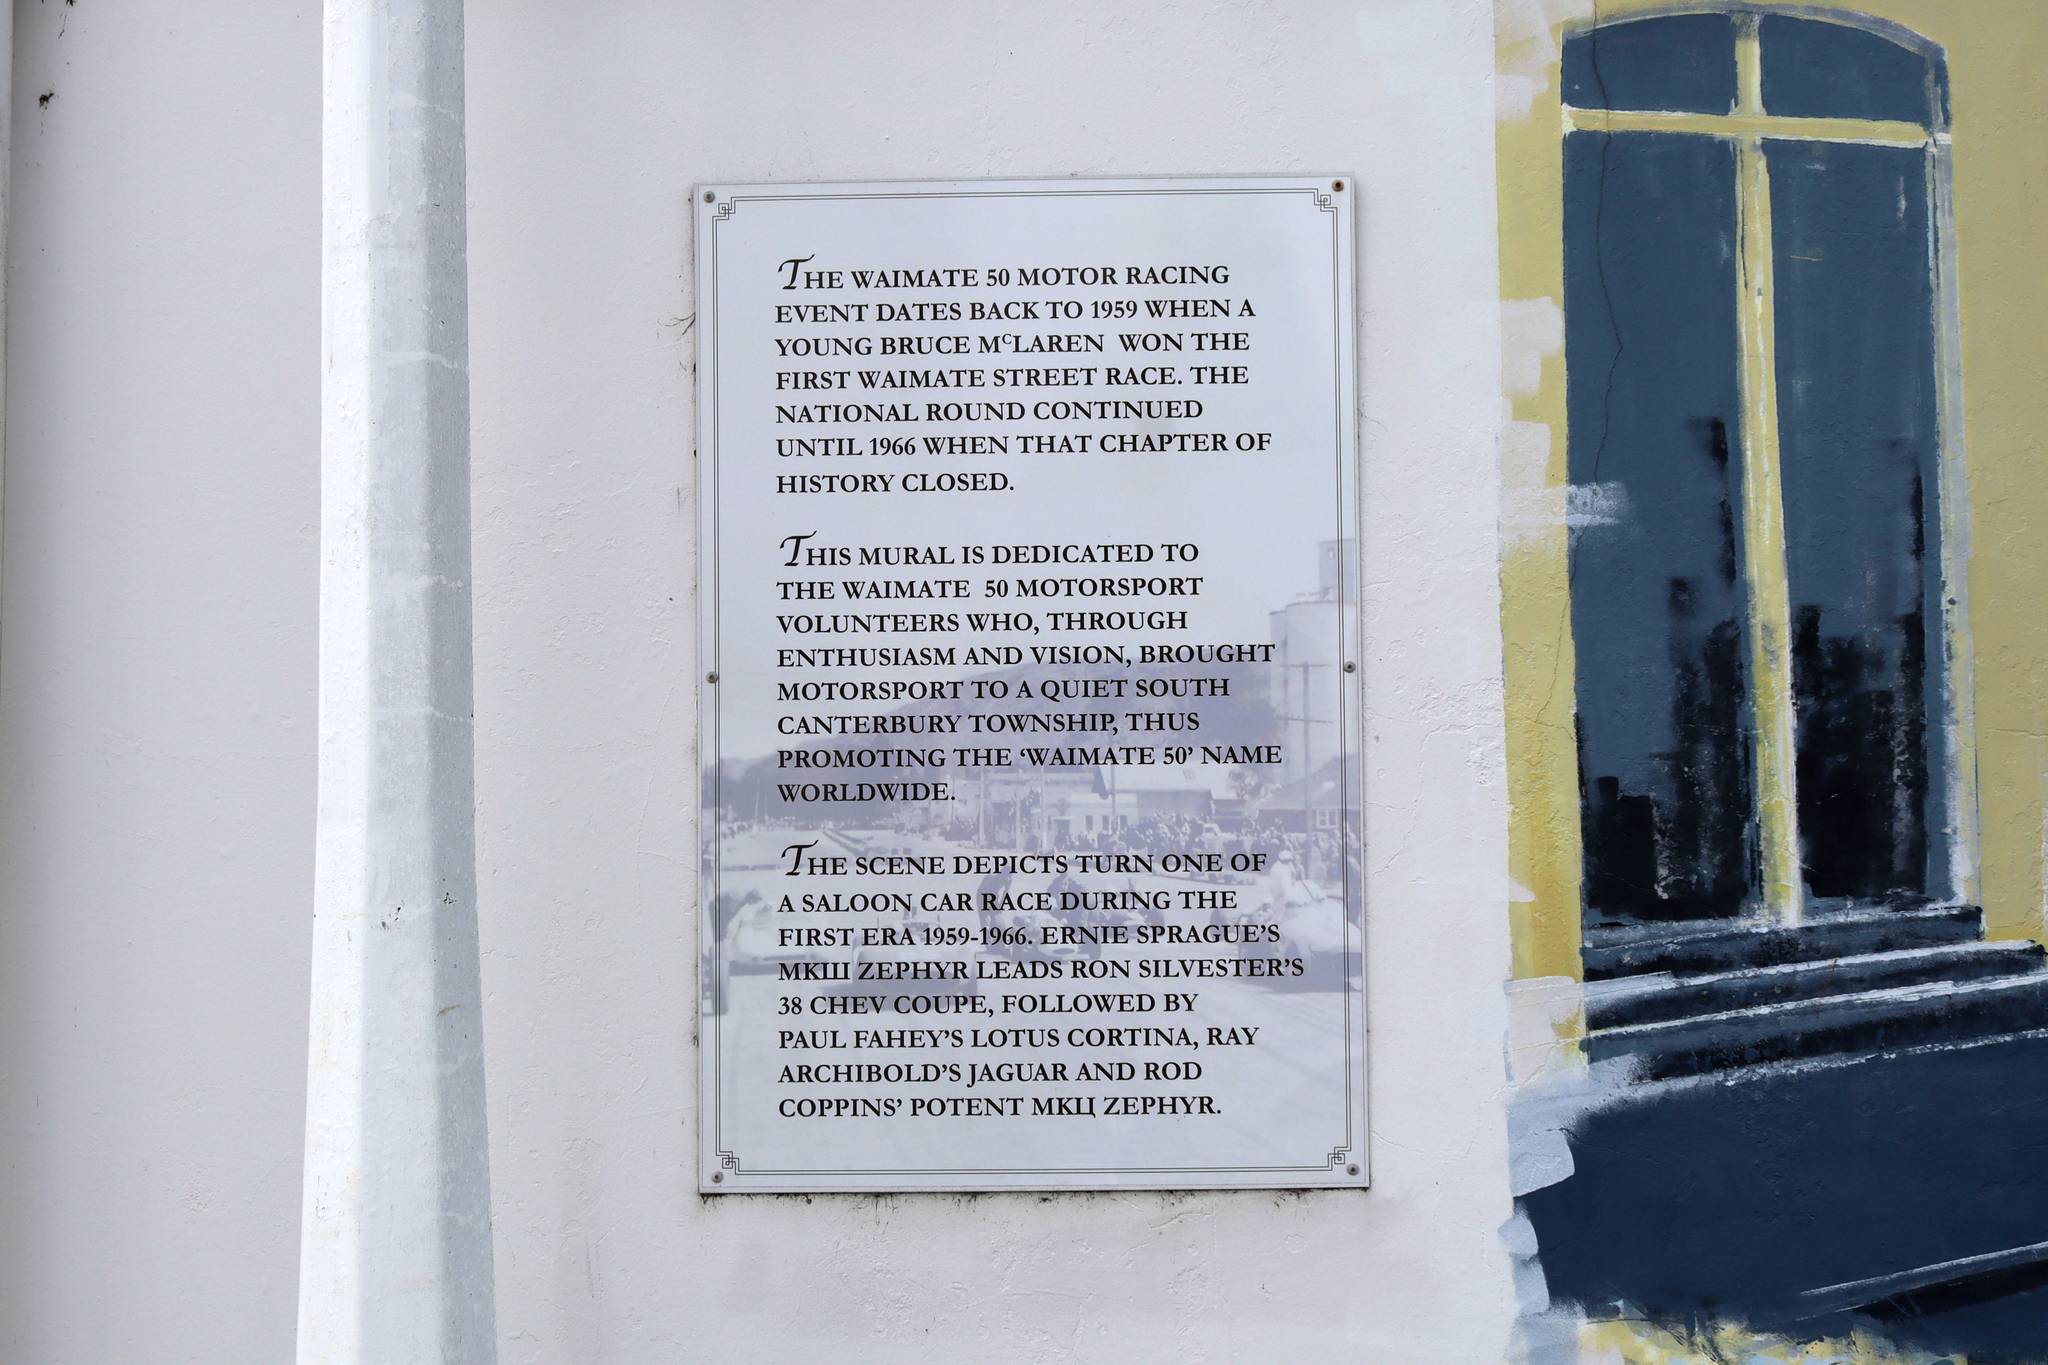 THE WAIMATE 50 MOTOR RACING
EVENT DATES BACK TO 1959 WHEN A
YOUNG BRUCE MCLAREN WON THE
FIRST WAIMATE STREET RACE. THE
NATIONAL ROUND CONTINUED
UNTIL 1966 WHEN THAT CHAPTER OF
HISTORY CLOSED.
THIS MURAL IS DEDICATED TO
THE WAIMATE 50 MOTORSPORT
VOLUNTEERS WHO, THROUGH
ENTHUSIASM AND VISION, BROUGHT
MOTORSPORT TO A QUIET SOUTH
CANTERBURY TOWNSHIP, THUS
PROMOTING THE ‘WAIMATE 50’ NAME
WORLDWIDE.
THE SCENE DEPICTS TURN ONE OF
A SALOON CAR RACE DURING THE
FIRST ERA 1959-1966. ERNIE SPRAGUE’S
MKIII ZEPHYR LEADS RON SILVESTER’S
38 CHEV COUPE, FOLLOWED BY
PAUL FAHEY’S LOTUS CORTINA, RAY
ARCHIBOLD’S JAGUAR AND ROD
COPPINS’ POTENT MKII ZEPHYR.